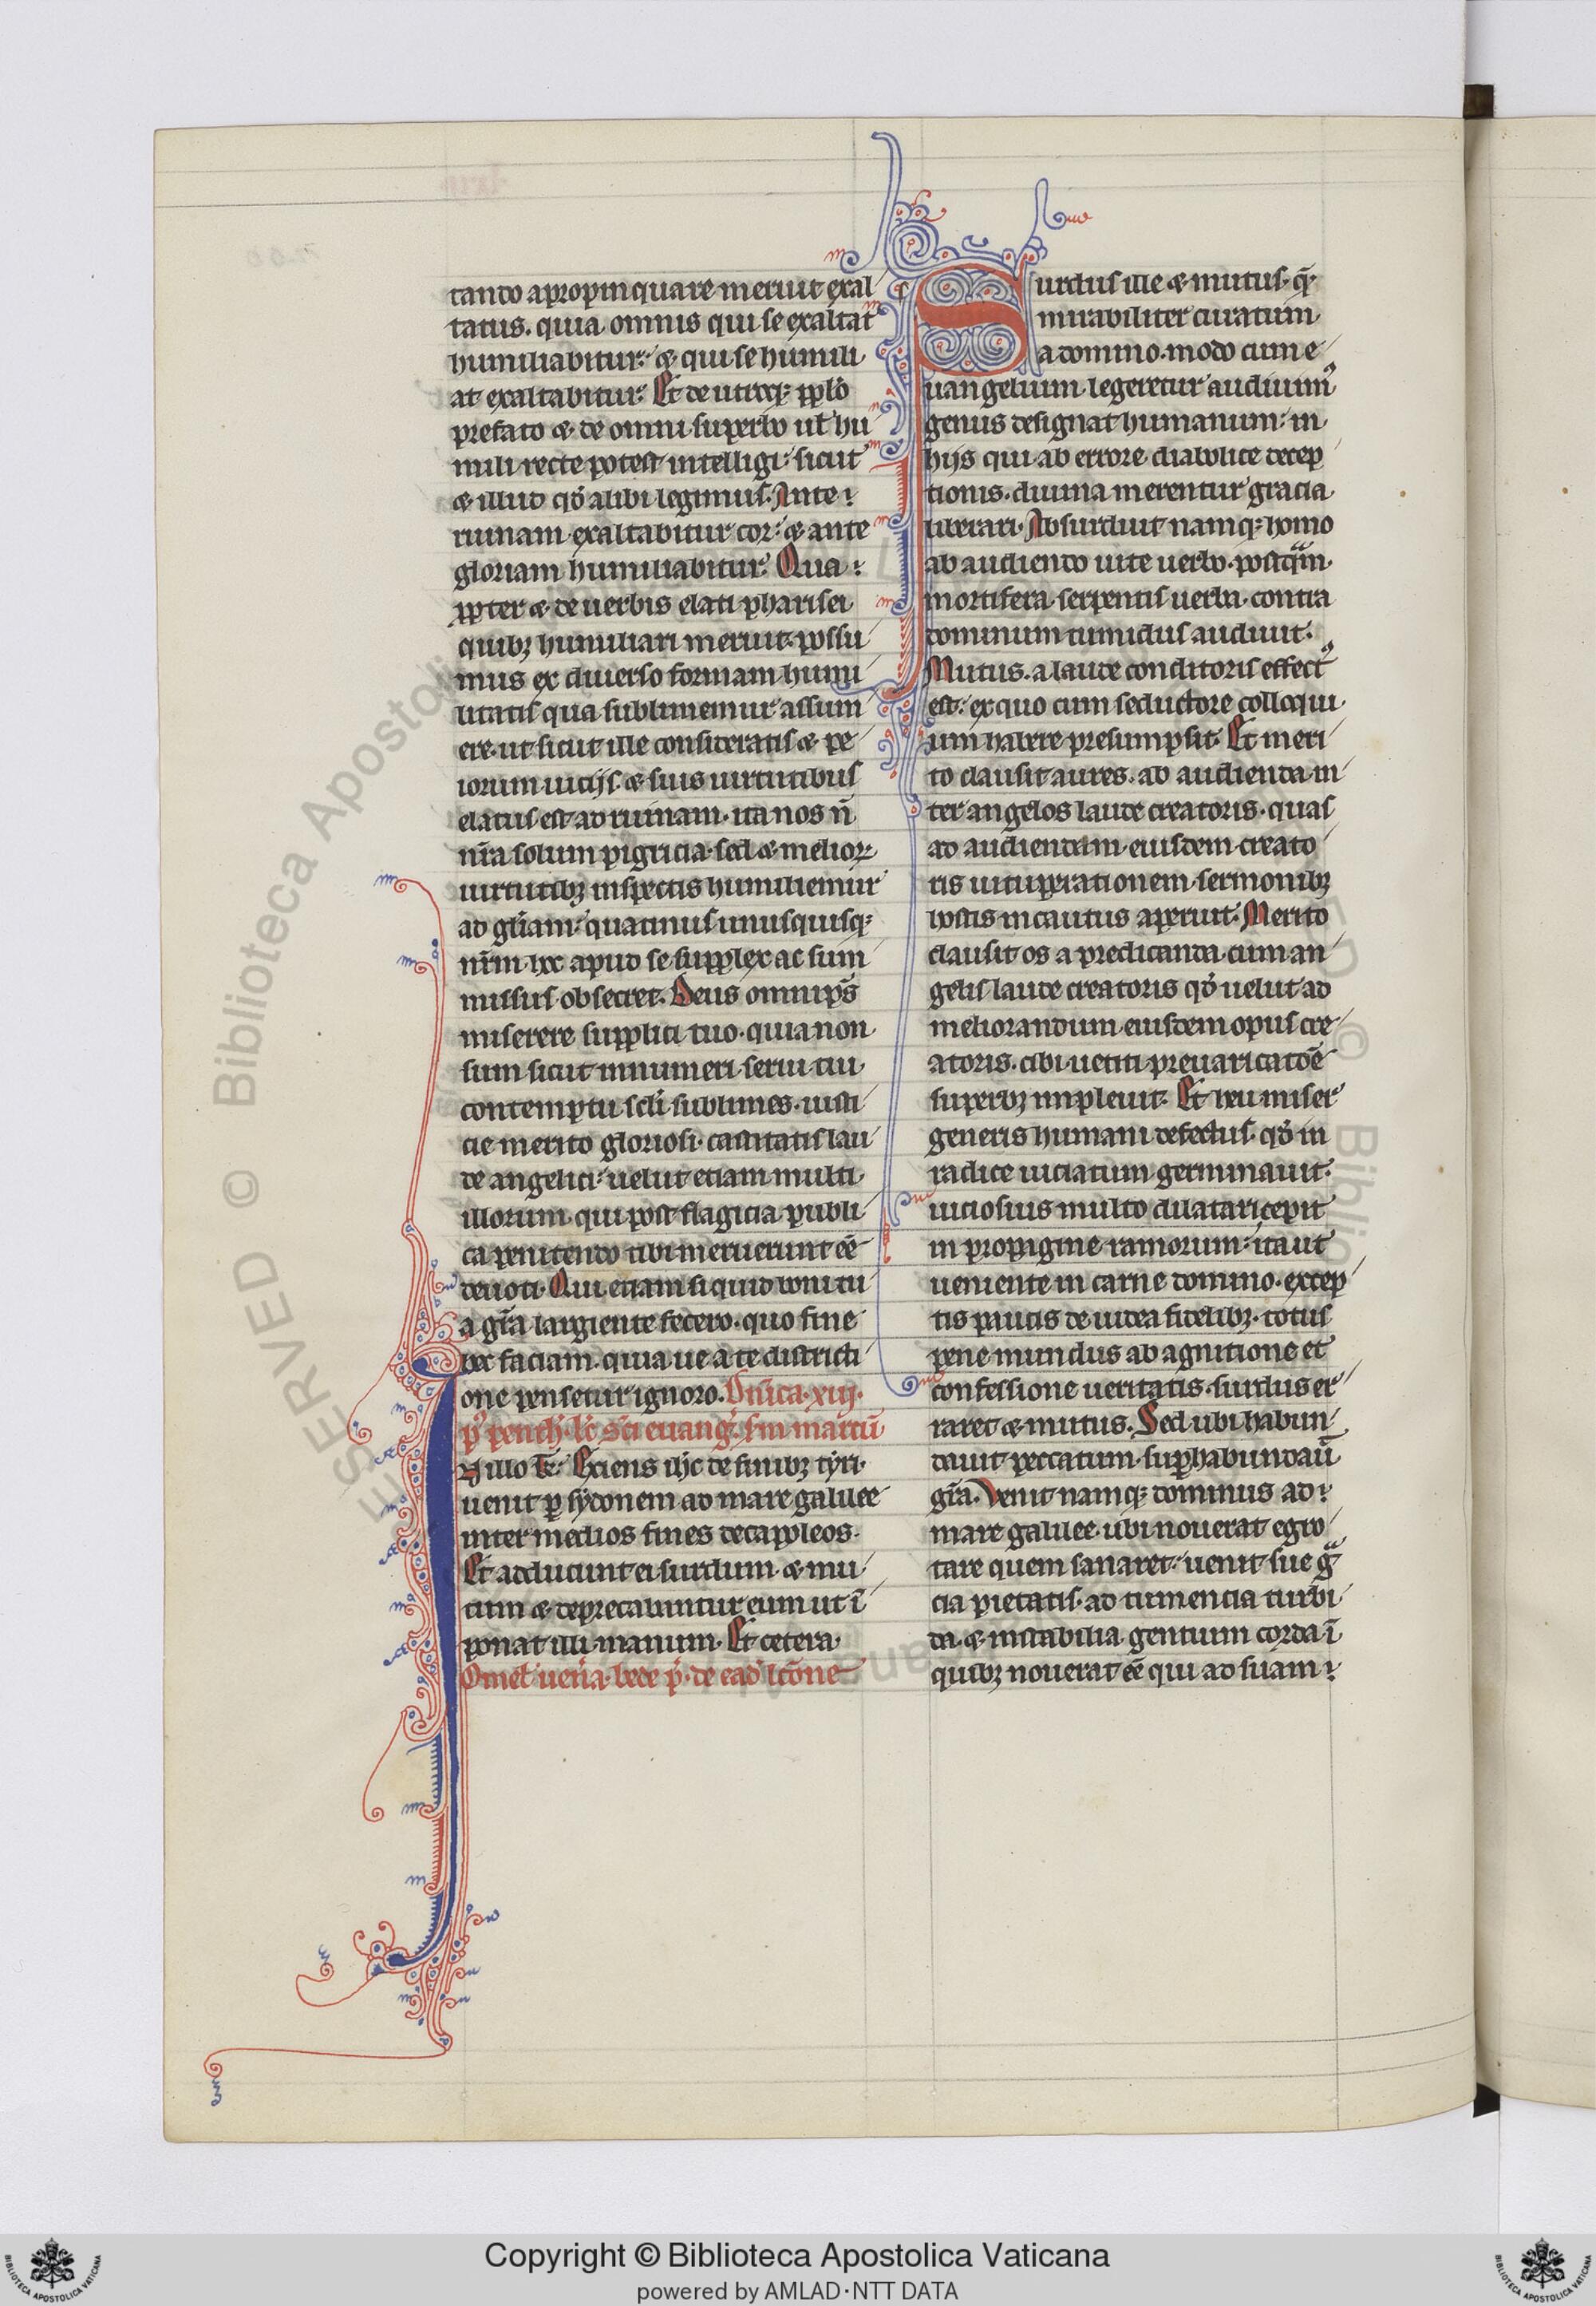 tanto apropinquare meruit exal
tatus. quia omnis qui se exaltat
humiliabitur: & qui se humili
at exaltabitur. Et de utroq; pplo
prefato & de omni superbo ul' hu
mili recte potest intelligi: sicut
& illud qd' alibi legimus. Ante
ruinam exaltabitur cor: & ante
gloriam humiliabitur. Qua
ppter & de uerbis elati pharisei
quibz humiliari meruit possu
mus ex diuerso formam humi
litatis qua sublimemur assum
ere. ut sicut ille consideratis & pe
iorum uicijs & suis uirtutibus
elatus est ad ruinam. ita nos n̄
nr̄a solum pigricia sed & melioꝝ
uirtutibz inspectis humiliemur
ad gl'iam: quatinus unusquisq;
nr̄m hec apud se supplex ac sum
missus obsecret. Deus omnip̄s
miserere supplici tuo. quia non
sum sicut innumeri serui tui
contemptu scl'i sublimes. iusti
cie merito gloriosi. castitatis lau
de angelici: uelut etiam multi
illorum qui post flagicia publi
ca penitendo tibi meruerunt eē
deuoti. Qui etiam si quid boni tu
a gr̄a largiente fecero. quo fine
hec faciam. quia ue a te districti
one pensetur ignoro. Dn̄ica. xiij.
p' pench'. lc̄ sc̄i euang'. sm marcū
N illo t̄. Exiens ih̄c de finibz tyri
uenit ꝑ sydonem ad mare galilee
inter medios fines decapoleos.
Et adducunt ei surdum & mu
tum & deprecabuntur eum ut ī
ponat illi manum. Et cetera
Omel' uen'a. bede p'. de ead' lc̄one
Surdus ille & mutus. q̄
mirabiliter curatum
a domino. modo cum e
uangelium legeretur audiuim'
genus designat humanum: in
hijs qui ab errore diabolice decep
tionis. diuina merentur gracia
liberari. Absurduit namq; homo
ab audiendo uite uerbo. postq̄m
mortifera serpentis uerba. contra
dominum tumidus audiuit.
Mutus. a laude conditoris effect'
est. ex quo cum seductore colloqui
um habere presumpsit. Et meri
to clausit aures. ab audienda in
ter angelos laude creatoris. quas
ad audiendam eiusdem creato
ris uituꝑationem sermonibz
hostis incautus aperuit. Merito
clausit os a predicanda cum an
gelis laude creatoris qd' uelut ad
meliorandum eiusdem opus cre
atoris. cibi uetiti preuaricatōe
superbz impleuit. Et heu miser
generis humani defectus. qd' in
radice uiciatum germinauit.
uiciosius multo dilatari cepit
in propagine ramorum: ita ut
ueniente in carne domino. excep
tis paucis de iudea fidelibz. totus
pene mundus ab agnitione et
confessione ueritatis. surdus er
raret & mutus. Sed ubi habun
dauit peccatum. suꝑhabundau'
gr̄a. Venit namq; dominus ad
mare galilee. ubi nouerat egro
tare quem sanaret. uenit sue g̃
cia pietatis. ad tumencia turbi
da. & instabilia gentium corda ī
quibz nouerat eē qui ad suam
Copyright © Biblioteca Apostolica Vaticana
powered by AMLAD·NTT DATA